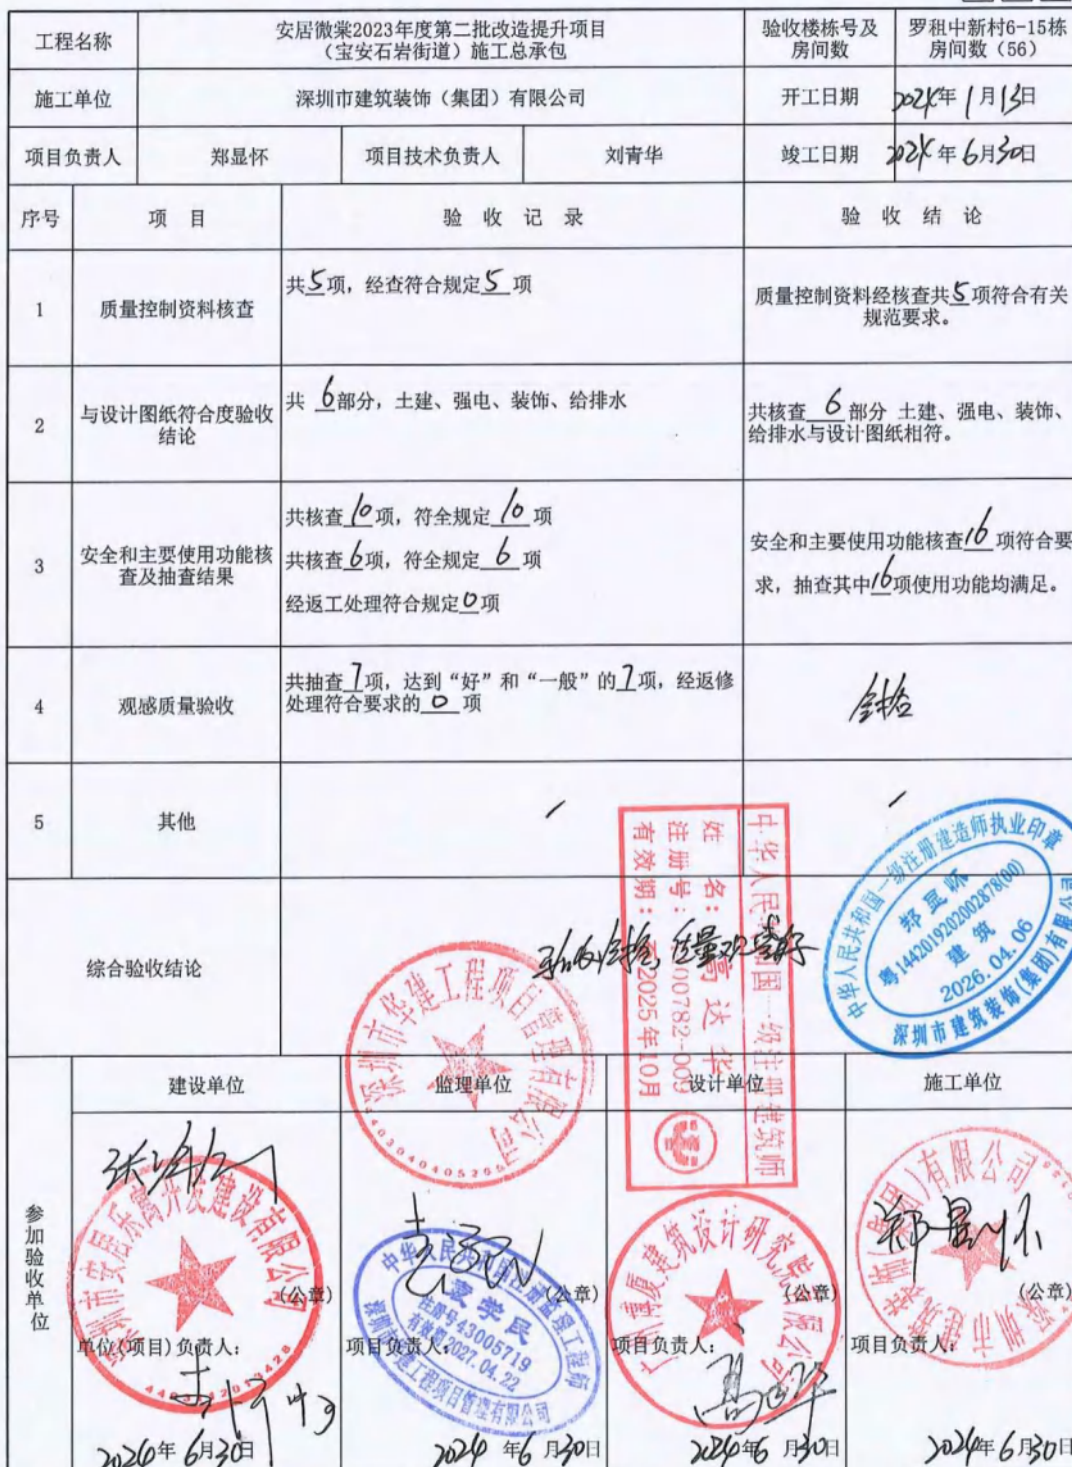 工程名称
安居微棠2023年度第二批改造提升项目
（宝安石岩街道）施工总承包
验收楼栋号及
房间数
罗租中新村6-15栋
房间数（56）
施工单位
深圳市建筑装饰（集团）有限公司
开工日期
2024年1月13日
项目负责人
郑显怀
项目技术负责人
刘青华
竣工日期
2024年6月30日
序号
项 目
验 收 记 录
验 收 结 论
1
质量控制资料核查
共5项，经查符合规定5项
质量控制资料经核查共5项符合有关
规范要求。
2
与设计图纸符合度验收
结论
共 6部分，土建、强电、装饰、给排水
共核查 6 部分 土建、强电、装饰、
给排水与设计图纸相符。
3
安全和主要使用功能核
查及抽查结果
共核查10项，符全规定10项
共核查6项，符全规定6项
经返工处理符合规定0项
安全和主要使用功能核查16项符合要
求，抽查其中16项使用功能均满足。
4
观感质量验收
共抽查7项，达到“好”和“一般”的7项，经返修
处理符合要求的0项
合格
5
其他
/
/
综合验收结论
验收合格，质量观感好
中华人民共和国一级注册建筑师
姓 名：高达华
有效期：至2025年10月
中华人民共和国一级注册建造师执业印章
郑显怀
粤1442019202002878(00)
建筑
2026.04.06
深圳市建筑装饰(集团)有限公司
深圳市华建工程项目管理有限公司
参加验收单位
建设单位
监理单位
设计单位
施工单位
郑显怀
(公章)
(公章)
(公章)
(公章)
中华人民共和国注册监理工程师
注册号43005719
有效期2027.04.22
单位(项目)负责人：
项目负责人：
项目负责人：
项目负责人：
高达华
2024年6月30日
2024年6月30日
2024年6月30日
2024年6月30日